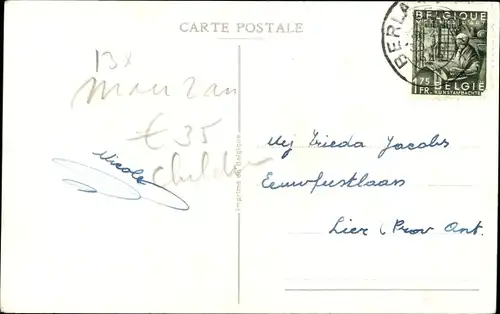 CARTE POSTALE
BERLA
BELGIQUE
1 75
FR.
BELGIË
KUNSTAMBACHTEN
13x
€ 35
Nicole
Imprimé en Belgique
Mej Frieda Jacobs
Eeuwfeestlaan
Lier (Prov Ant.